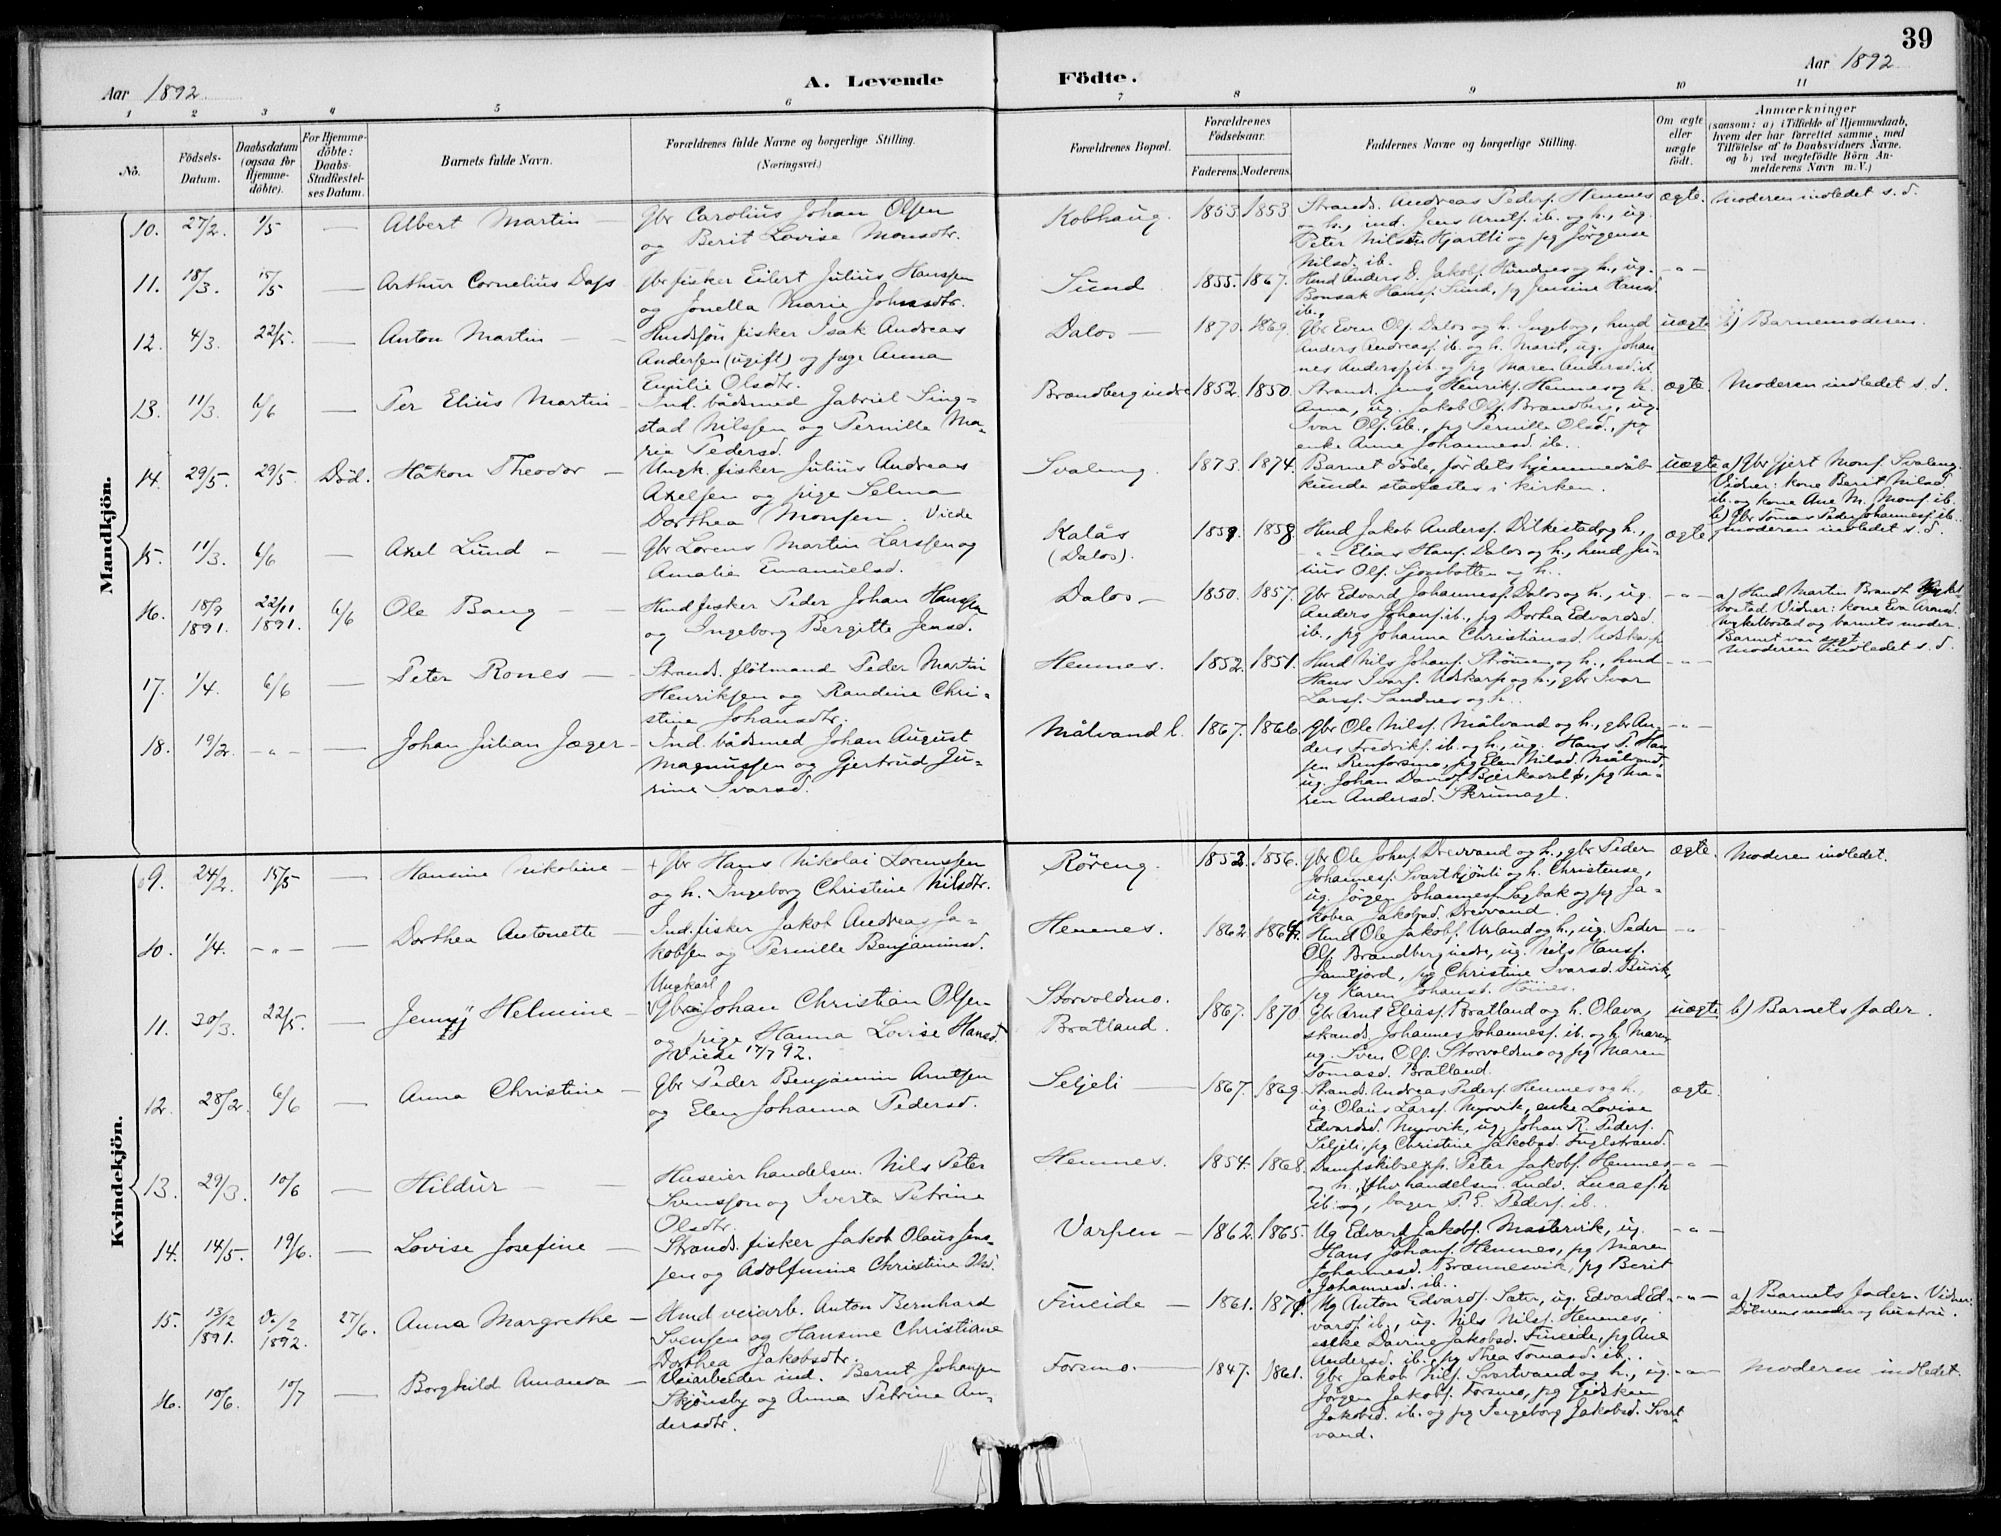 39
Aar 1892
A. Levende Födte.
Aar 1892
1 2 3 4 5 6 7 8 9 10 11
No.
Födsels-Datum.
Daabsdatum (ogsaa för Hjemme-döbte).
For Hjemme-döbte: Daabs-Stadfæstel-ses Datum.
Barnets fulde Navn.
Forældrenes fulde Navne og borgerlige Stilling.
(Næringsvei.)
Forældrenes Bopæl.
Forældrenes Födselsaar.
Faderens. Moderens.
Faddernes Navne og borgerlige Stilling.
Om ægte eller uægte födt.
Anmærkninger
(saasom: a) i Tilfælde af Hjemmedaab, hvem der har forrettet samme, med Tilföielse af to Daabsvidners Navne. og b) ved uægtefödte Börn An-melderens Navn m. V.)
Mandkjön.
10. 27/2. 1/5 — Albert Martin
Gbr Carolius Johan Olsen
og Berit Lovise Monsdtr.
Kobhaug. 1853. 1853.
Strands. Andreas Peders. Hemnes
og h., ind. Jens Arnts. ib. og h., ug.
Peter Nilsen Hjartli og pg Jörgense
Nilsd. ib.
ægte. Moderen indledet s. d.
11. 18/3. 15/5 — Arthur Cornelius Dass
Gbr fisker Eilert Julius Hanssen
og Jonella Marie Johnsdtr.
Sund 1855. 1867.
Hmd Anders D. Jakobs. Hundnes og h., ug.
Bonsak Hans. Sund, pg Jensine Hansd.
ib.
—„—
12. 4/3. 22/5. — Anton Martin
Hmdsøn fisker Isak Andreas
Andersen (ugift) og pige Anna
Emilie Olsdtr.
Dalos — 1870. 1869.
Gbr Even Ols. Dalos og h. Ingeborg, hmd
Anders Andreass. ib. og h. Marit, ug. Johan
nes Anderss. ib. og pg Maren Andersd. ib.
uægte b) Barnemoderen.
13. 11/3. 6/6 — Per Elius Martin
Ind. bådsmed Gabriel Sing-
stad Nilssen og Pernille Ma-
rie Pedersd.
Brændberg indre 1852. 1850.
Strands. Jens Henriks. Hemnes og h.
Anna, ug. Jakob Ols. Brændberg, ug.
Ivar Ols. ib., pg Pernille Olsd., pg
enke Anne Johannesd. ib.
ægte. Moderen indledet s. d.
14. 29/5. 29/5. Död. Håkon Theodor —
Ungk. fisker Julius Andreas
Axelsen og pige Selma
Dorthea Monsen. Viede
Svaleng. 1873. 1874.
Barnet döde, för dets hjemmedåb
kunde stadfæstes i kirken.
uægte a) Gbr Gjert Mons. Svaleng.
Vidner: kone Berit Nilsd.
ib. og kone Ane M. Mons. ib.
b) Gbr Tomas Peder Johannes. ib.
15. 11/3. 6/6 — Axel Lund —
Gbr Lorens Martin Larssen og
Amalie Emanuelsd.
Kalås
(Dalos). 1859. 1858.
Hmd Jakob Anders. Dilkestad og h.,
„ Elias Hans. Dalos og h., hmd Ju-
lius Ols. Sjonbotten og h.
ægte. moderen indledet s. d.
16. 18/9 1891. 22/11 1891. 6/6 Ole Bang —
Hmd fisker Peder Johan Hanssen
og Ingeborg Bergitte Jensd.
Dalos — 1850. 1857.
Gbr Edvard Johanness. Dalos og h., ug.
Anders Johans. ib., pg Dorthea Edvardsd.
ib., pg Johanna Christiansd. Utskarp.
—„— a) Hmd Martin Brandt
Vidner: kone Eva
og barnets moder.
Barnet var sygt.
17. 1/4. 6/6 — Peter Rones —
Strands. flötmand Peder Martin
Henriksen og Randine Chri-
stine Johansdtr.
Hemnes. 1852. 1851.
Hmd Nils Johans. Strömen og h., hmd
Hans Ivars. Utskarp og h., gbr Ivar
Lars. Sandnes og h.
—„— moderen indledet s. d.
18. 19/2. —„— — Johan Julian Jæger —
Ind. bådsmed Johan August
Magnussen og Gjertrud Ju-
rine Ivarsd.
Målvand l. 1867. 1866.
Gbr Ole Nils. Målvand og h., gbr An-
ders Fredriks. ib. og h., ug. Hans P. Han-
sen Renforsmo, pg Elen Nilsd. Målvand,
ug. Johan Davids. Bjerkadal ö, pg Ma-
ren Andersd. Skrumagt.
—„—
Kvindekjön.
9. 24/2. 15/5 — Hansine Nikoline —
Gbr Hans Nikolai Lorenssen
og h. Ingeborg Christine Nilsdtr.
Röreng. 1852. 1856.
Gbr Ole Johs. Drevvand og h., gbr Peder
Johannes. Svartkjönli og h. Christense,
ug. Jörgen Johannes. Sagbak og pg Ja-
kobea Jakobsd. Drevvand.
ægte. Moderen indledet.
10. 1/4. —„— — Dorthea Antonette —
Ind. fisker Jakob Andreas Ja-
kobsen og Pernille Benjaminsd.
Hemnes. 1862. 1864.
Hmd Ole Jakobs. Urland og h., ug. Peder
Ols. Brændberg indre, ug. Nils Hans.
Jamtjord, pg Christine Ivarsd. Buvik,
pg Karen Johansd. Hemnes.
—„—
11. 30/3. 22/5. — Jenny Helmine —
Ungkarl
Johan Christian Olsen
og pige Hanna Lovise Hansd.
Viede 17/7 92.
Storvoldmo.
Bratland. 1867. 1870.
Gbr Arnt Elias. Bratland og h. Olava,
skands. Johannes Johannes. ib. og h. Maren
ug. Sven Ols. Storvoldmo og pg Maren
Tomasd. Bratland.
uægte b) Barnets fader.
12. 28/2. 6/6 — Anna Christine —
Gbr Peder Benjamin Arntsen
og Elen Johanna Pedersd.
Seljeli — 1867. 1869.
Strands. Andreas Peders. Hemnes og h.,
ug. Olaus Lars. Myrvik, enke Lovise
Edvardsd. Myrvik, ug. Johan R. Peders.
Seljeli, pg Christine Jakobsd. Fuglstrand.
ægte.
13. 29/3. 10/6 — Hildur —
Huseier handelsm. Nils Peter
Svenssen og Iverta Petrine
Olsdtr.
Hemnes. 1854. 1868.
Dampskibsexp. Peter Jakobs. Hemnes
og h., handelsm. Ludv. Lucas. h
ib. og bager P. E. Peders. ib.
—„—
14. 14/5. 19/6. — Lovise Josefine —
Strands. fisker Jakob Olaus Jens-
sen og Adolfmine Christine Olsd.
Varpen — 1862. 1865.
Ug Edvard Jakobs. Mastervik, ug.
Hans Johans. Hemnes, pg Maren
Johannesd. Brænnesvik, pg Berit
Johannesd. ib.
—„—
15. 13/12 1891. /2 1892. 27/6. Anna Margrethe —
Hmd veiarb. Anton Bernhard
Svensen og Hansine Christiane
Dorthea Jakobsdtr.
Fineide — 1861. 1871.
Ug Anton Edvards. Sæter, ug. Edvard Ed-
vards. ib., ug. Nils Nils. Hemnes,
enke Davine Jakobsd. Fineide, pg Ane
Andersd. ib., pg Thea Tomasd. ib.
—„— a) Barnets fader. Vidner:
og hustru.
16. 10/6. 10/7 — Borghild Amanda —
Veiarbeider ind. Bernt Johansen
Skjönsby og Anna Petrine An-
dersdtr.
Forsmo. — 1847. 1861.
Gbr Jakob Nils. Svartvand og h., ug.
Jörgen Jakobs. Forsmo, pg Gidsken
Jakobsd. ib. og pg Ingeborg Jakobsd. Svart-
vand.
—„— Moderen indledet.